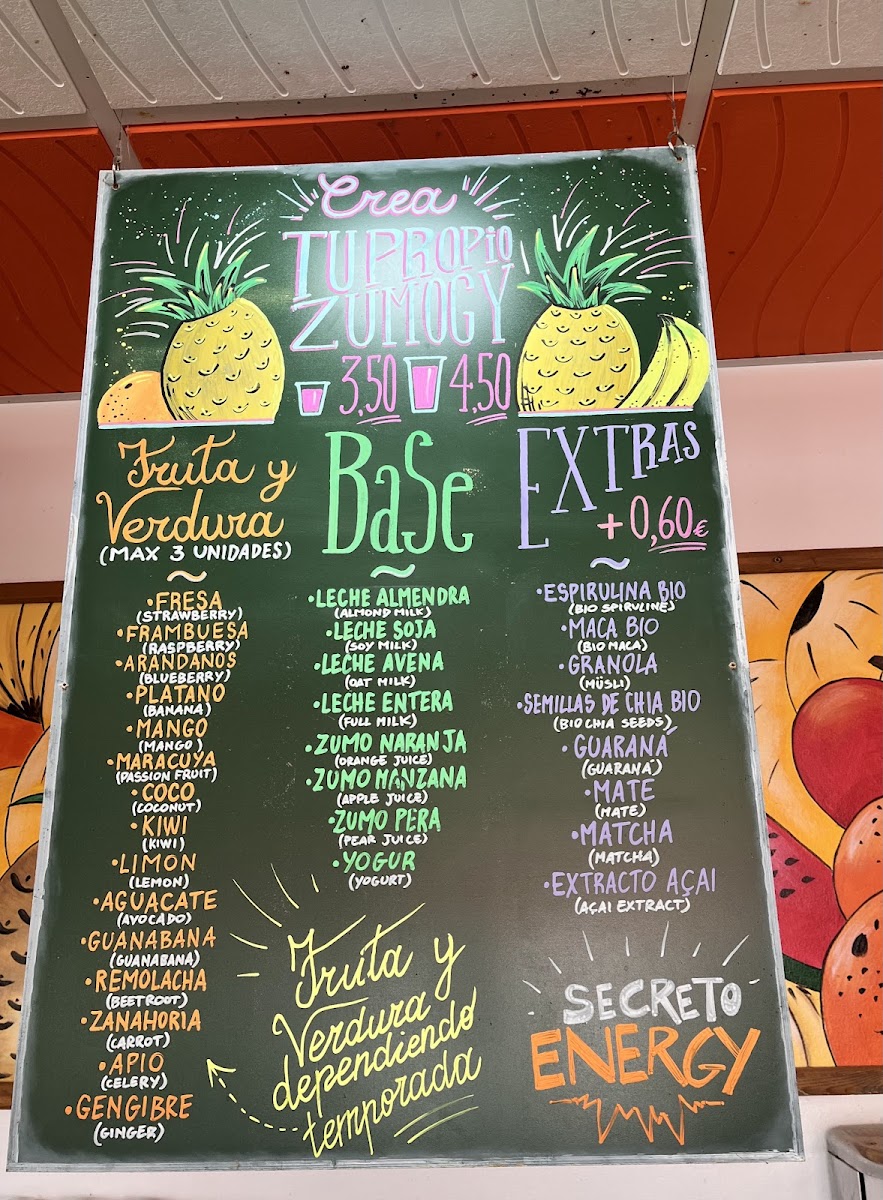 Crea
TU PROPIO
ZUMOGY
3,50 4,50
Fruta y
Verdura
(MAX 3 UNIDADES)
~
•FRESA
(STRAWBERRY)
•FRAMBUESA
(RASPBERRY)
•ARÁNDANOS
(BLUEBERRY)
•PLATANO
(BANANA)
•MANGO
(MANGO)
•MARACUYA
(PASSION FRUIT)
•COCO
(COCONUT)
•KIWI
(KIWI)
•LIMON
(LEMON)
•AGUACATE
(AVOCADO)
•GUANABANA
(GUANABANA)
•REMOLACHA
(BEETROOT)
•ZANAHORIA
(CARROT)
•APIO
(CELERY)
•GENGIBRE
(GINGER)
BaSe
~
•LECHE ALMENDRA
(ALMOND MILK)
•LECHE SOJA
(SOY MILK)
•LECHE AVENA
(OAT MILK)
•LECHE ENTERA
(FULL MILK)
•ZUMO NARANJA
(ORANGE JUICE)
•ZUMO MANZANA
(APPLE JUICE)
•ZUMO PERA
(PEAR JUICE)
•YOGUR
(YOGURT)
Fruta y
Verdura
dependiendo
temporada
EXTRAS
+0,60€
~
•ESPIRULINA BIO
(BIO SPIRULINE)
•MACA BIO
(BIO MACA)
•GRANOLA
(MÜSLI)
•SEMILLAS DE CHIA BIO
(BIO CHIA SEEDS)
•GUARANÁ
(GUARANÁ)
•MATE
(MATE)
•MATCHA
(MATCHA)
•EXTRACTO AÇAI
(AÇAI EXTRACT)
SECRETO
ENERGY